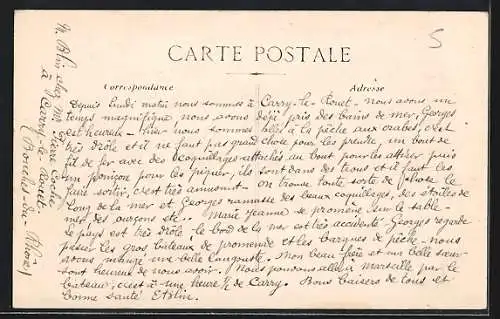 5
CARTE POSTALE
Correspondance
Adresse
Depuis lundi matin nous sommes à Carry-le-Rouet - nous avons un
temps magnifique, nous avons déjà pris des bains de mer, Georges
est heureux - hier nous sommes allés à la pêche aux crabes, c'est
très drôle et il ne faut pas grand chose pour les prendre, un bout de
fil de fer avec des coquillages attachés au bout pour les attirer puis
un poinçon pour les piquer, ils sont dans des trous et il faut les
faire sortir, c'est très amusant - on trouve toute sorte de chose le
long de la mer et Georges ramasse des beaux coquillages, des étoiles de
mer des ourçons etc.. Marie Jeanne se promène sur le sable -
le pays est très drôle le bord de la mer est très accidenté. Georges regarde
passer les gros bateaux de promenade et les barques de pêche - nous
avons mangé une belle langouste. Mon beau frère et ma belle sœur
sont heureux de nous avoir. Nous pouvons aller à Marseille par le
bateau, c'est à une heure ½ de Carry. Bons baisers de tous et
bonne santé
M. Blin chez Mr Pierre
à Carry-le-Rouet
(Bouches-du-Rhône)